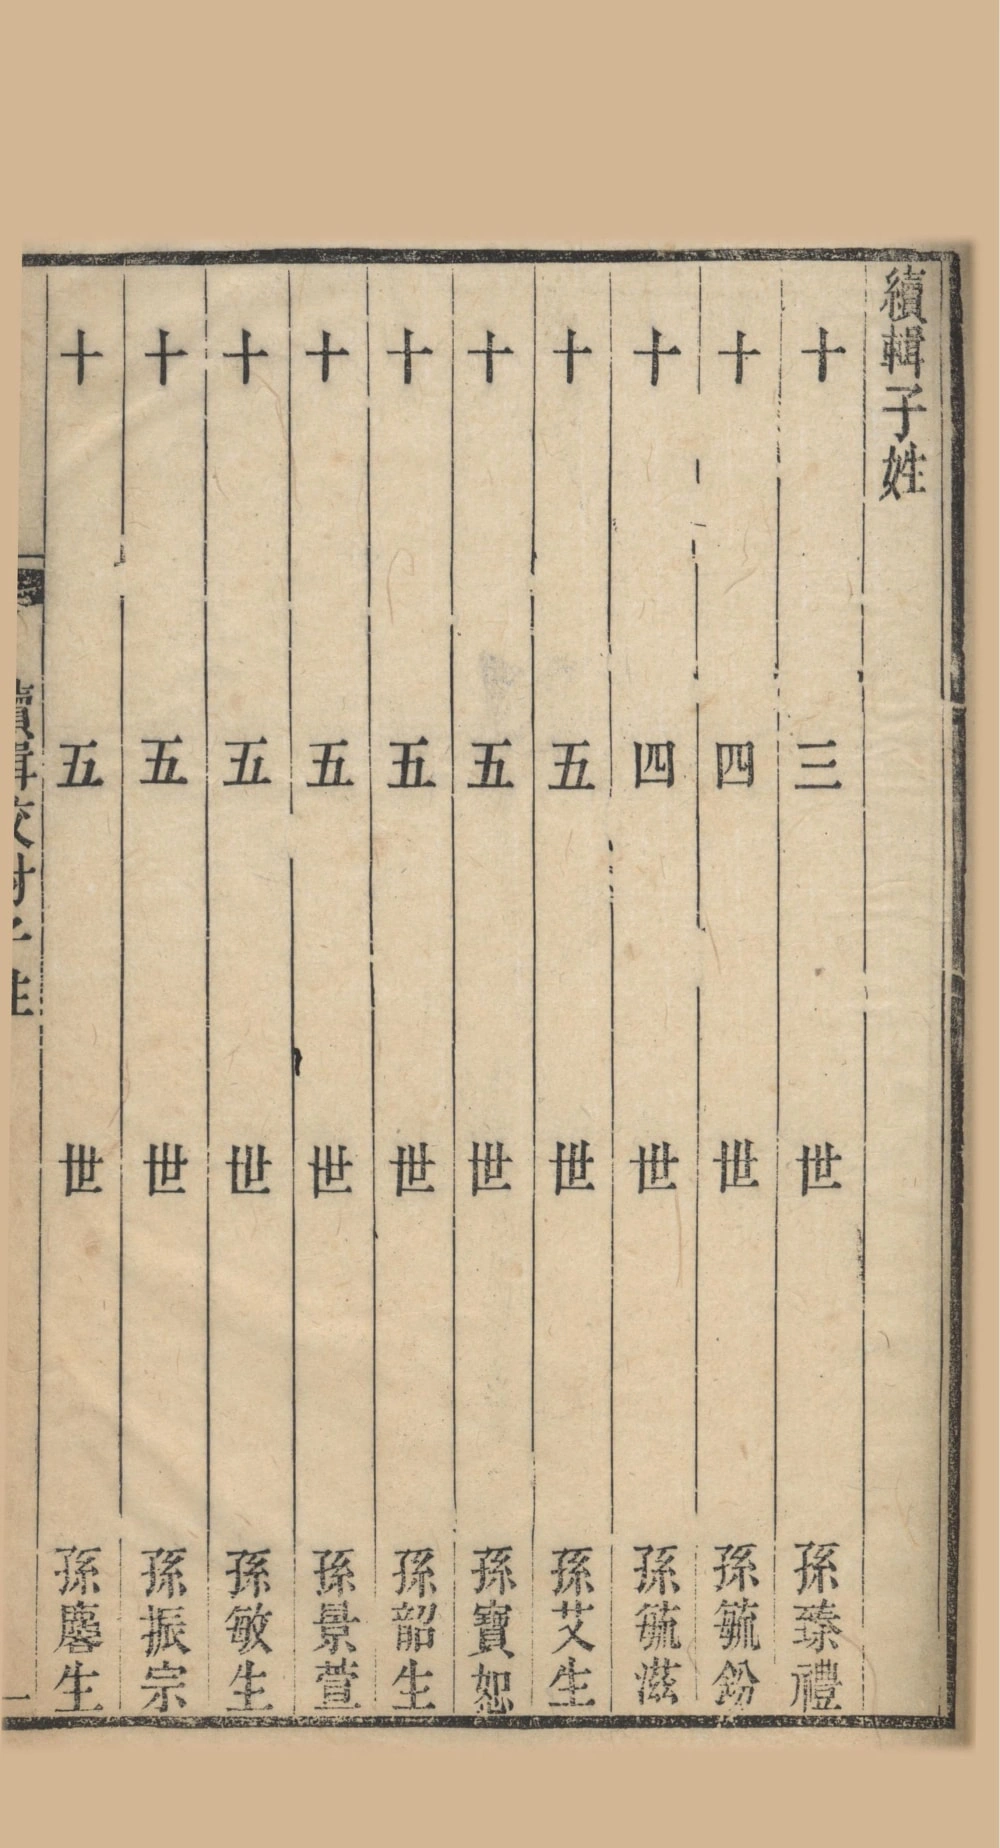 續輯子姓
十三世孫臻禮
十四世孫毓鈖
十四世孫毓滋
十五世孫艾生
十五世孫寶恕
十五世孫韶生
十五世孫景萱
十五世孫敏生
十五世孫振宗
十五世孫麐生
續輯校對子姓
一